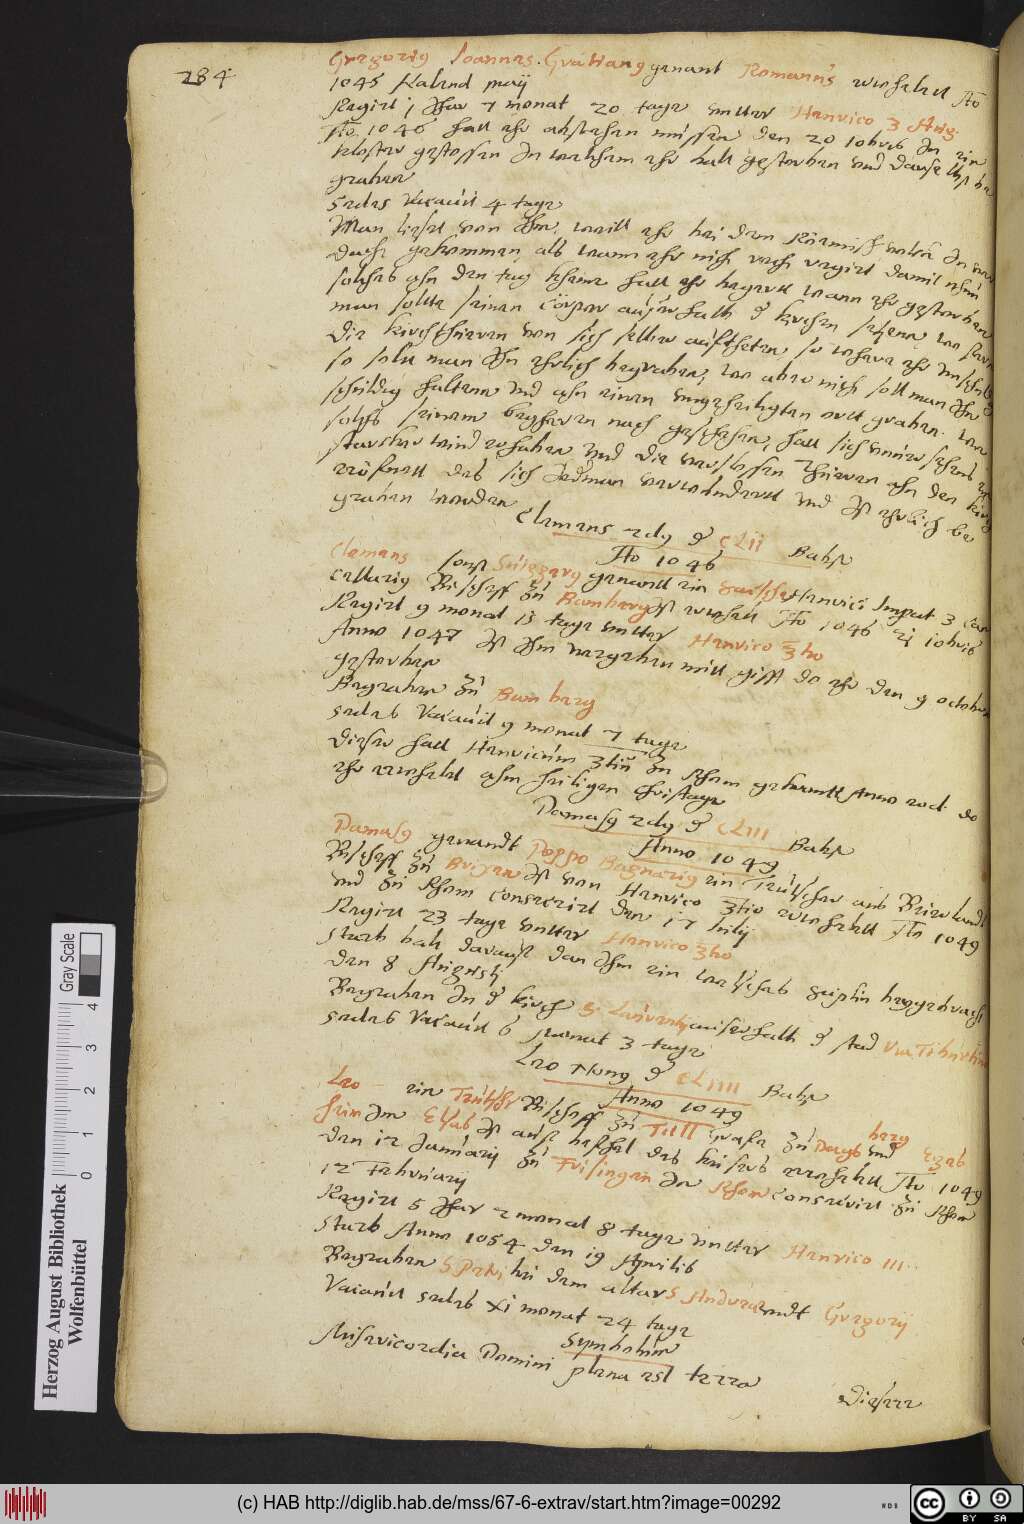 284
Gregorig Joannes Gratiang genant Romanus erwehelet Ao
1045 Kalend maÿ
Regirt 1 Jhar 7 monat 20 tage vntter Henrico 3 Aug.
Ao. 1046 hatt ehr abstehen müssen den 20 10bris In ein
kloster gestossen In welchem ehr hatt gestorben vnd daselbst be
graben
Sedes Vacauit 4 tage
Man liset von Ihm, weill ehr bei dem Römisch volck In ver
dacht gekommen als wann ehr nicht recht regirt damit ehm
solches ahn den tag kheme hatt ehr begertt wann ehr gestorben
man solte seinen cörper ausserhalb d kirchen setzenn, wo sein
die kirchthüeren von sich selber aufftheten so wehere ehr vnschuldig
so solte man Ihn ehrlich begraben, wo aber nicht soll man Ihn
schuldig haltenn vnd ahn einen vngeheiligten ortt graben.
solchs seinem begheren nach geschehen, hatt sich
starcker wind erhaben vnd die verschlossen thüeren ahn der kirch
eröffnett das sich Jederman verwundertt vnd Ist ehrlich be
graben worden
Clemens 2dg d CLII Babst
Ao 1046
Clemens sonst Suiggerg genantt ein Henrici Imperat 3 Can
cellarig Bischoff zu Bamberg Ist erwehelt Ao 1046 10bris
Regirt 9 monat 15 tage vntter Henrico 3tio
Anno 1047 Ist Ihm vergeben mitt gifft do ehr den 9 octobris
gestorben
Begraben zu Bamberg
Sedes Vacauit 9 monat 7 tage
Dieser hatt Henricum 3tium zu Rhom gekröntt Anno eod. do
ehr erwehelet ahm heiligen christage
Damasg 2dg d CLIII Babst
Anno 1049
Damasg genandt Poppo Bagnarig ein Teutscher aus Beierlandt
Bischoff zu Brixen Ist von Henrico 3tio erwehelett Ao 1049
vnd zu Rhom consecrirt den 17 Iulij
Regirt 23 tage vntter Henrico 3tio
starb balt darauff den Ihm ein welsches suplin beygebracht
den 8 Augusti
Begraben In d kirch S. Laurentij ausserhalb d stad Via Tiburtina
Sedes Vacauit 6 monat 3 tage
Leo Nong d CLIIII Babst
Anno 1049
Leo ein Teutscher Bischoff zu Tull Graffe zu Dagsberg vnd Egs
heim Im Elsas Ist auss befehel des keisers erwehelett Ao 1049
den 12 Januarij zu Frisingen In Rhom consecrirt zu Rhom
12 Februarij
Regirt 5 Jhar 2 monat 8 tage vntter Henrico III
starb Anno 1054 den 19 Aprilis
Begraben S Petri bei dem altar S Andreae vndt Gregorij
Vacauit sedes XI monat 24 tage
Symbolum
Misericordia Domini plena est terra
Dieserr
Herzog August Bibliothek
Wolfenbüttel
Gray Scale
0 1 2 3 4
(c) HAB http://diglib.hab.de/mss/67-6-extrav/start.htm?image=00292
WDB
cc BY SA